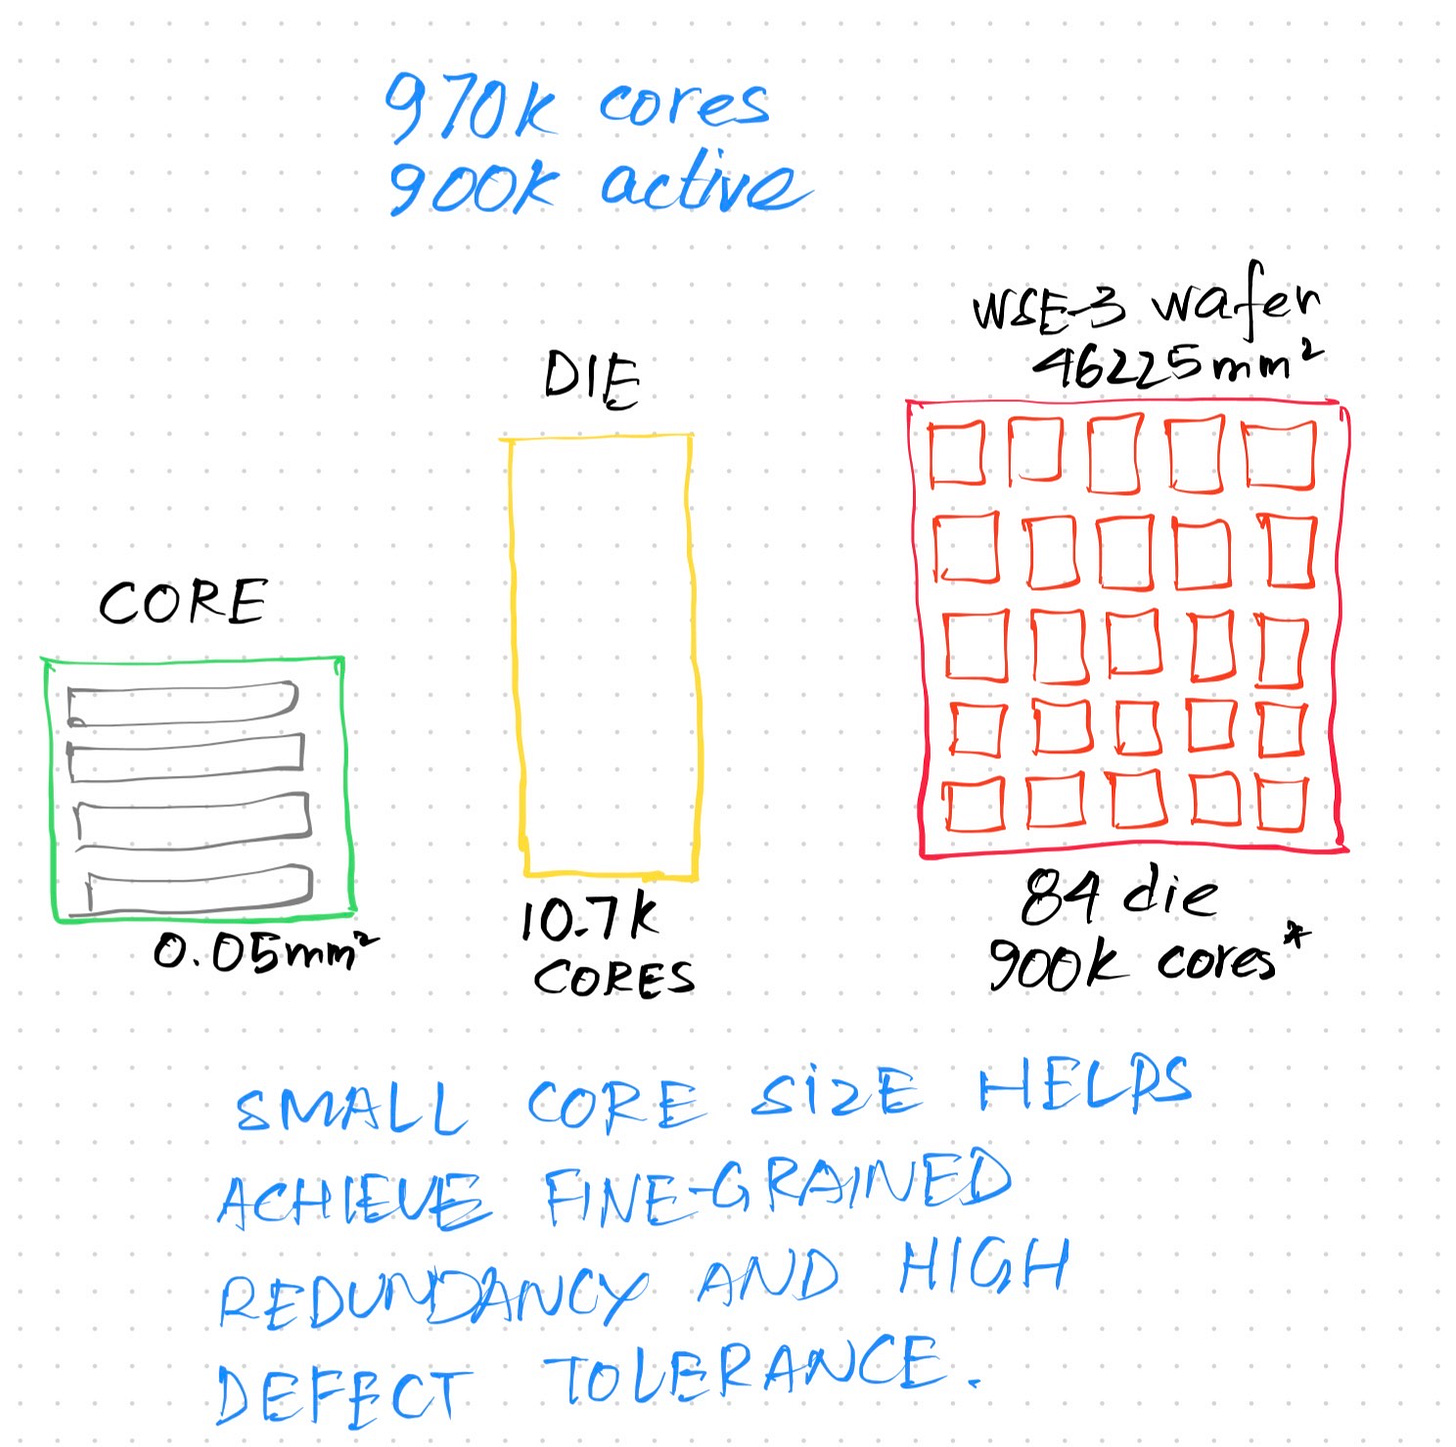 970k cores
900k active
WSE-3 wafer
46225mm²
DIE
CORE
0.05mm²
10.7k
CORES
84 die
900k cores*
SMALL CORE SIZE HELPS
ACHIEVE FINE-GRAINED
REDUNDANCY AND HIGH
DEFECT TOLERANCE.